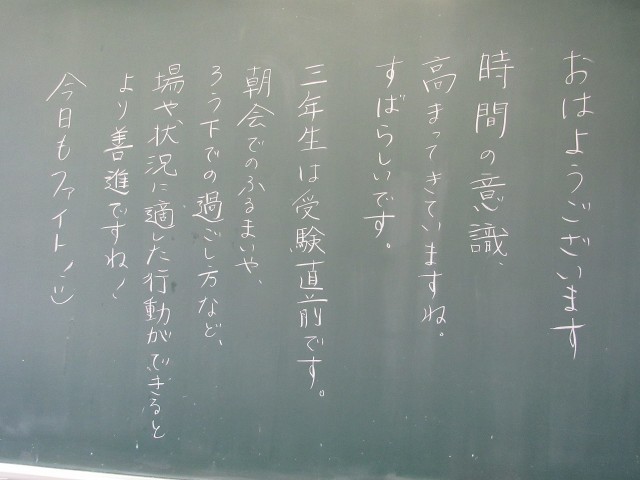 おはようございます
時間の意識、
高まってきていますね。
すばらしいです。
三年生は受験直前です。
朝会でのふるまいや、
ろう下での過ごし方など、
場や状況に適した行動ができると
より善進ですね！
今日もファイト！